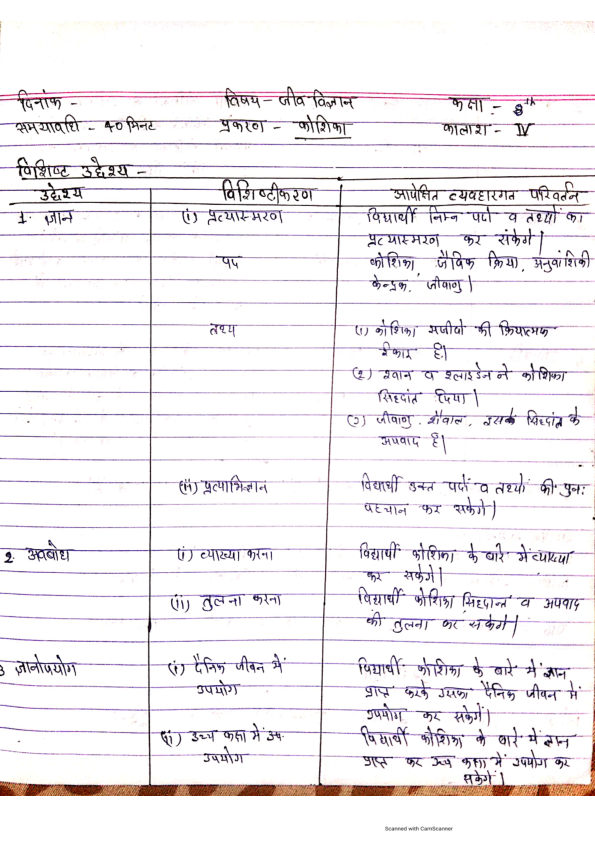 दिनांक - विषय - जीव विज्ञान कक्षा - 8th
समयावधि - 40 मिनट प्रकरण - कोशिका कालांश - IV
विशिष्ट उद्देश्य -
उद्देश्य विशिष्टीकरण आपेक्षित व्यवहारगत परिवर्तन
1. ज्ञान (i) प्रत्यास्मरण विद्यार्थी निम्न पदों व तथ्यों का
प्रत्यास्मरण कर सकेंगे |
पद कोशिका, जैविक क्रिया, अनुवांशिकी
केन्द्रक, जीवाणु |
तथ्य (1) कोशिका सजीवों की क्रियात्मक
ईकाई है।
(2) श्वान व श्लाइडेन ने कोशिका
सिद्दांत दिया |
(3) जीवाणु, शैवाल, इसके सिद्दांत के
अपवाद है |
(ii) प्रत्याभिज्ञान विद्यार्थी उक्त पदों व तथ्यों की पुन:
पहचान कर सकेंगे |
2. अवबोध (i) व्याख्या करना विद्यार्थी कोशिका के बारे में व्याख्या
कर सकेगें |
(ii) तुलना करना विद्यार्थी कोशिका सिद्दान्त व अपवाद
की तुलना कर सकेगें |
3 ज्ञानोपयोग (i) दैनिक जीवन में विद्यार्थी कोशिका के बारे में ज्ञान
उपयोग प्राप्त करके उसका दैनिक जीवन में
उपयोग कर सकेगें |
(ii) उच्च कक्षा में विद्यार्थी कोशिका के बारे में ज्ञान
उपयोग प्राप्त कर उच्च कक्षा में उपयोग कर
सकेगें |
Scanned with CamScanner